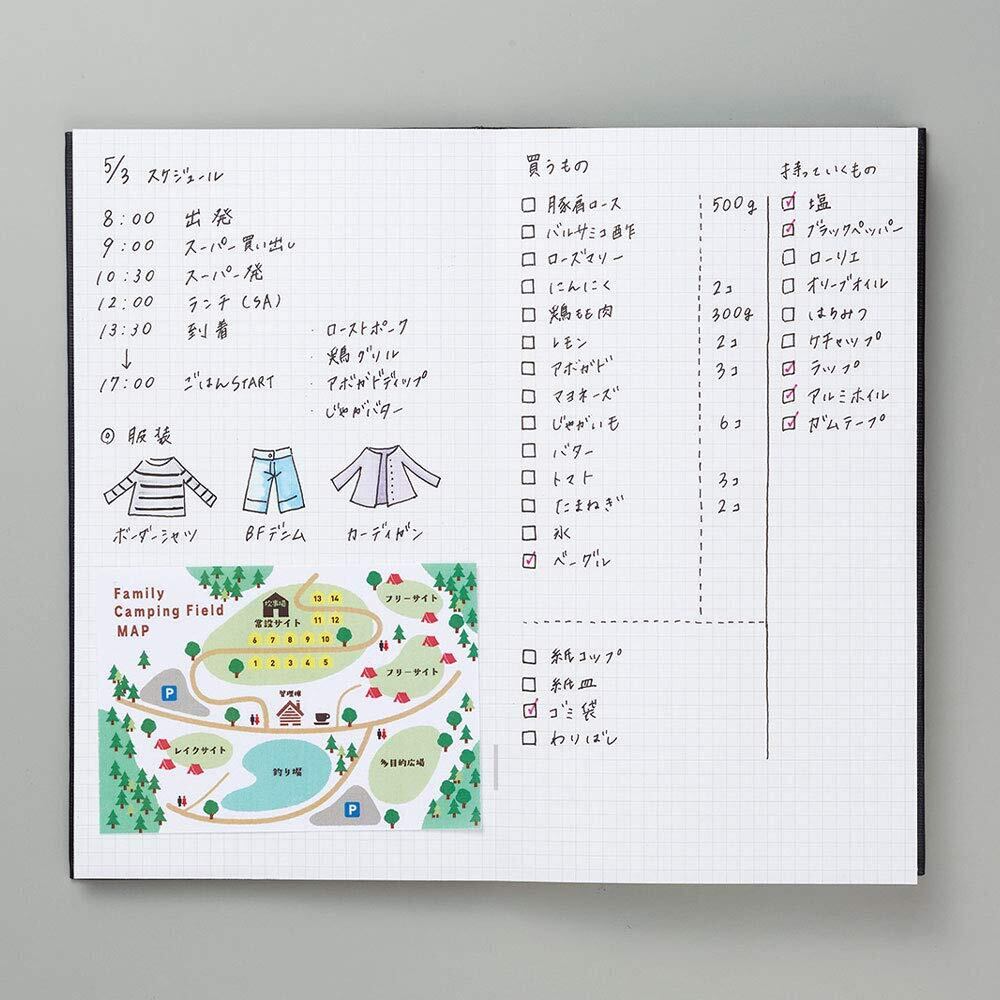 5/3 スケジュール
8:00 出発
9:00 スーパー買い出し
10:30 スーパー発
12:00 ランチ(SA)
13:30 到着 ・ローストポーク
↓ ・鶏グリル
17:00 ごはんSTART ・アボガドディップ
・じゃがバター
◎ 服装
ボーダーシャツ BFデニム カーディガン
Family
Camping Field
MAP
炊事場
常設サイト
13 14
11 12
6 7 8 9 10
1 2 3 4 5
フリーサイト
フリーサイト
P
管理棟
レイクサイト
釣り堀
多目的広場
P
買うもの
豚肩ロース 500g
バルサミコ酢
ローズマリー
にんにく 2コ
鶏もも肉 300g
レモン 2コ
アボガド 3コ
マヨネーズ
じゃがいも 6コ
バター
トマト 3コ
たまねぎ 2コ
氷
ベーグル
紙コップ
紙皿
ゴミ袋
わりばし
持っていくもの
塩
ブラックペッパー
ローリエ
オリーブオイル
はちみつ
ケチャップ
ラップ
アルミホイル
ガムテープ